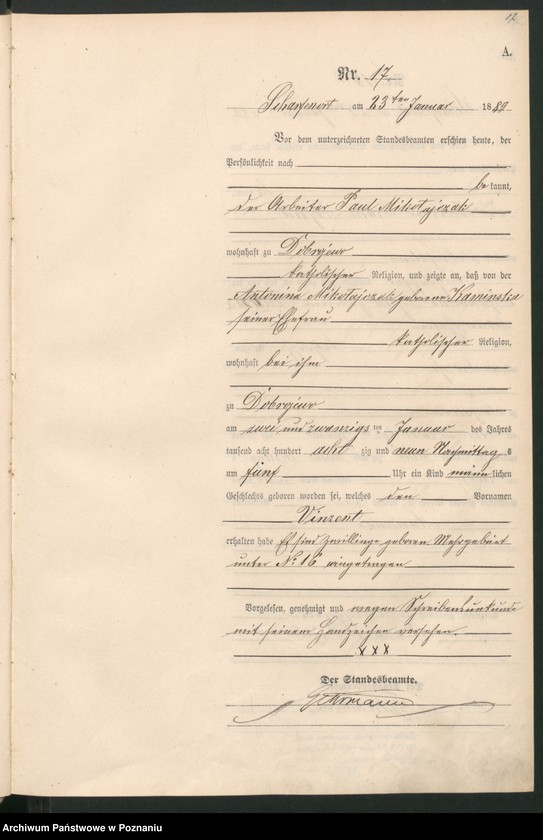 17
A.
Nr. 17
Scharfenort am 23ten Januar 1889
Vor dem unterzeichneten Standesbeamten erschien heute, der
Persönlichkeit nach
bekannt,
der Arbeiter Paul Mikołajczak
wohnhaft zu Dobrojewo
katholischer Religion, und zeigte an, daß von der
Antonina Mikołajczak geborene Kaminska
seiner Ehefrau
katholischer Religion,
wohnhaft bei ihm
zu Dobrojewo
am zwei und zwanzigsten Januar des Jahres
tausend acht hundert achtzig und neun Nachmittags
um fünf Uhr ein Kind männlichen
Geschlechts geboren worden sei, welches den Vornamen
Vinzent
erhalten habe Es sind Zwillinge geboren
unter No 16 eingetragen
Vorgelesen, genehmigt und wegen Schreibensunkunde
mit seinem Handzeichen versehen.
xxx
Der Standesbeamte.
Archiwum Państwowe w Poznaniu